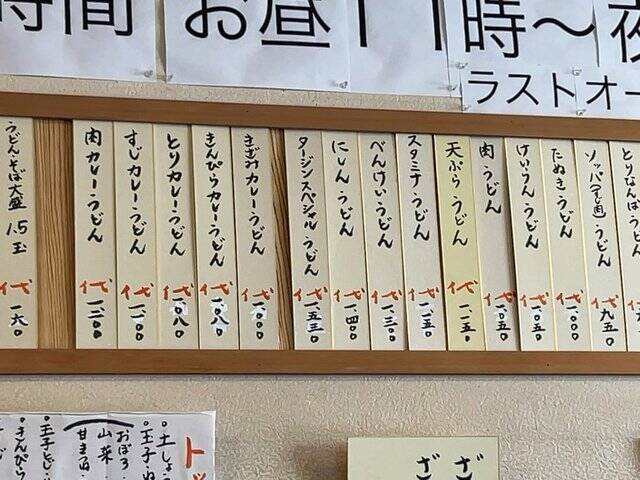 時間 お昼11時〜夜
ラストオー
とりなんばうどん
ソッパ(すじ肉)うどん 代九五〇
たぬきうどん 代一、〇〇〇
けいらんうどん 代一、〇五〇
肉うどん 代一、〇五〇
天ぷらうどん 代一、一五〇
スタミナうどん 代一、二五〇
べんけいうどん 代一、三〇〇
にしんうどん 代一、四〇〇
タージンスペシャルうどん 代一、五三〇
きざみカレーうどん 代一、〇〇〇
きんぴらカレーうどん 代一、〇八〇
とりカレーうどん 代一、〇八〇
すじカレーうどん 代一、一〇〇
肉カレーうどん 代一、二〇〇
うどん・そば大盛 1.5玉 代一六〇
トッ
。土しょう
。玉子・ね
おぼろ
山菜
甘きつね
。玉子とじ
。きんぴら
ざ
ざ